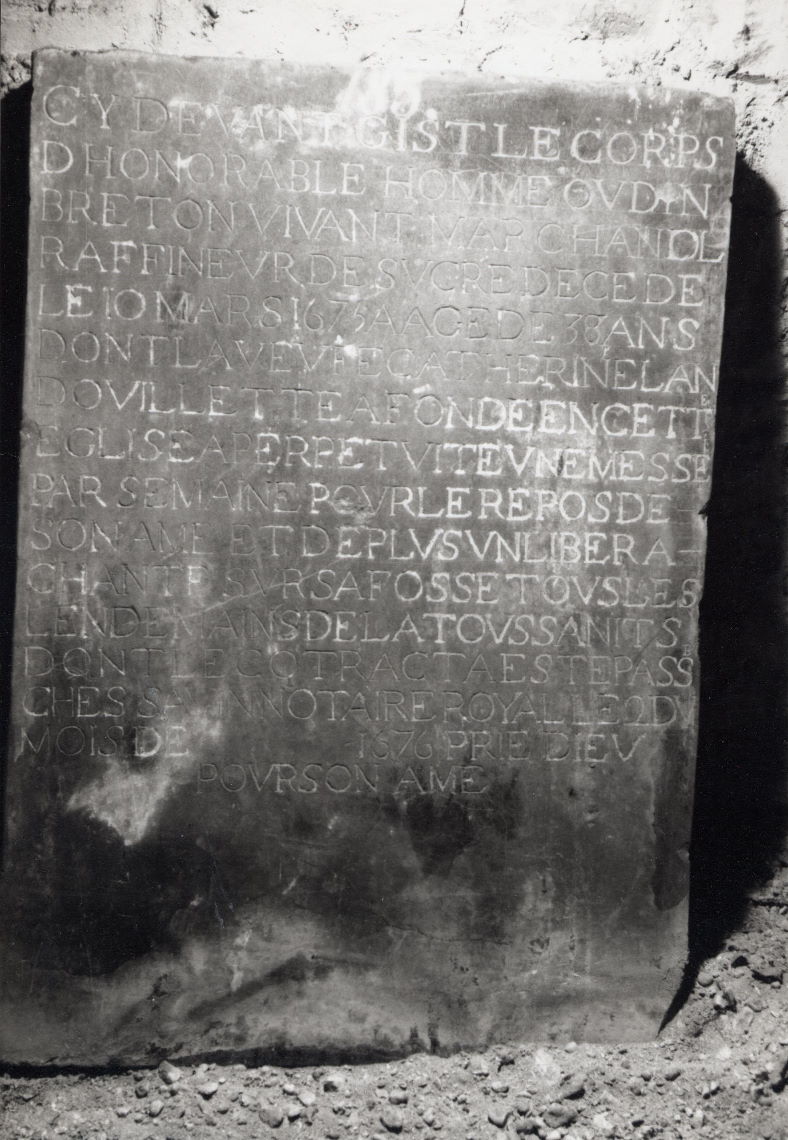 CY DEVANT GIST LE CORPS
D HONORABLE HOMME OVDIN
BRETON VIVANT MARCHAND
RAFFINEVR DE SVCRE DECEDE
LE 10 MARS 1675 AAGE DE 38 ANS
DONT LA VEVFE CATHERINE LAN
DOVILLETTE A FONDE EN CETTE
EGLISE A PERPETVITE VNE MESSE
PAR SEMAINE POVR LE REPOS DE
SON AME ET DE PLVS UN LIBERA
CHANTE SVR SA FOSSE TOVS LES
LENDEMAINS DE LA TOVSSANITS
DONT LE COTRACT A ESTE PASSE
CHES NOTAIRE ROYAL LE 2 DV
MOIS DE 1676 PRIE DIEV
POVR SON AME